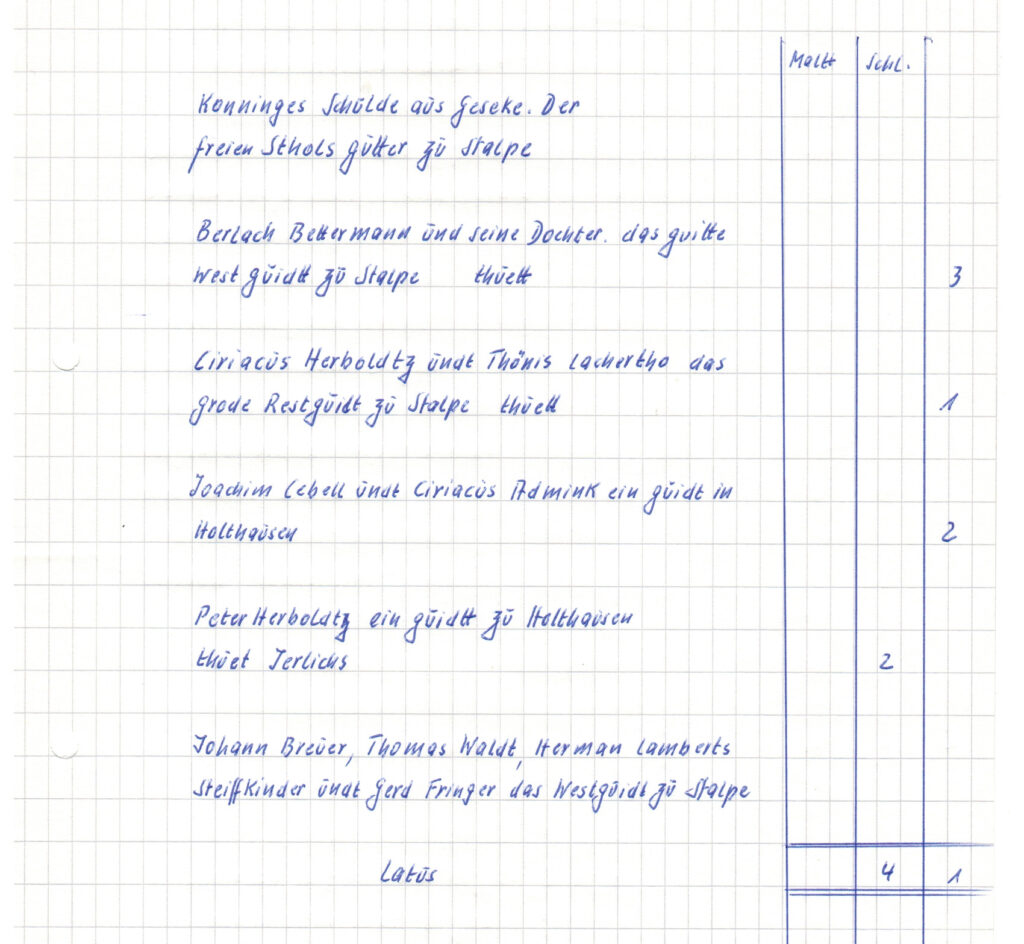 Maltt Schl.
Konninges Schülde aüs Geseke. Der
freien Sthols gütter zü Stalpe
Berlach Bettermann ünd seine Dochter. das guitte
West güidtt zü Stalpe thüett 3
Ciriacüs Herboldtz ündt Thönis Lachertho das
grode Restgüidt zü Stalpe thüett 1
Joachim Cebell ündt Ciriacüs Admink ein güidt in
Holthaüsen 2
Peter Herboldtz ein güidtt zü Holthaüsen
thüet Jerlichs 2
Johann Breüer, Thomas Waldt, Herman Lamberts
Steiffkinder ündt Gerd Fringer das Westgüidt zü Stalpe
Latüs 4 1